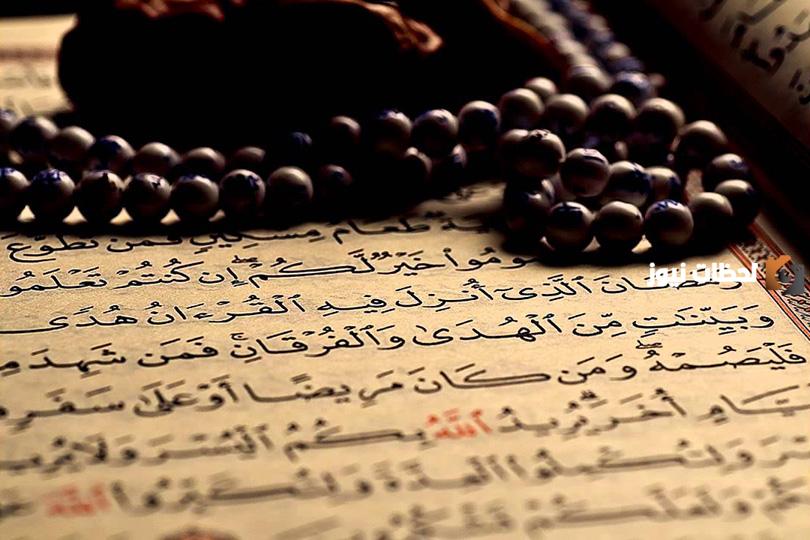 طَعَامُ مِسْكِينٍ فَمَن تَطَوَّعَ
خَيْرٌ لَّكُمْ إِن كُنتُمْ تَعْلَمُو
لحظات نيوز
ٱلَّذِىٓ أُنزِلَ فِيهِ ٱلْقُرْءَانُ هُدًى
وَبَيِّنَٰتٍ مِّنَ ٱلْهُدَىٰ وَٱلْفُرْقَانِ ۚ فَمَن شَهِدَ
فَلْيَصُمْهُ ۖ وَمَن كَانَ مَرِيضًا أَوْ عَلَىٰ سَفَرٍ
أُخَرَ ۗ يُرِيدُ ٱللَّهُ بِكُمُ ٱلْيُسْرَ وَلَا يُرِيدُ
وَلِتُكْمِلُوا۟ ٱلْعِدَّةَ وَلِتُكَبِّرُوا۟ ٱللَّهَ
وَلَعَلَّكُمْ